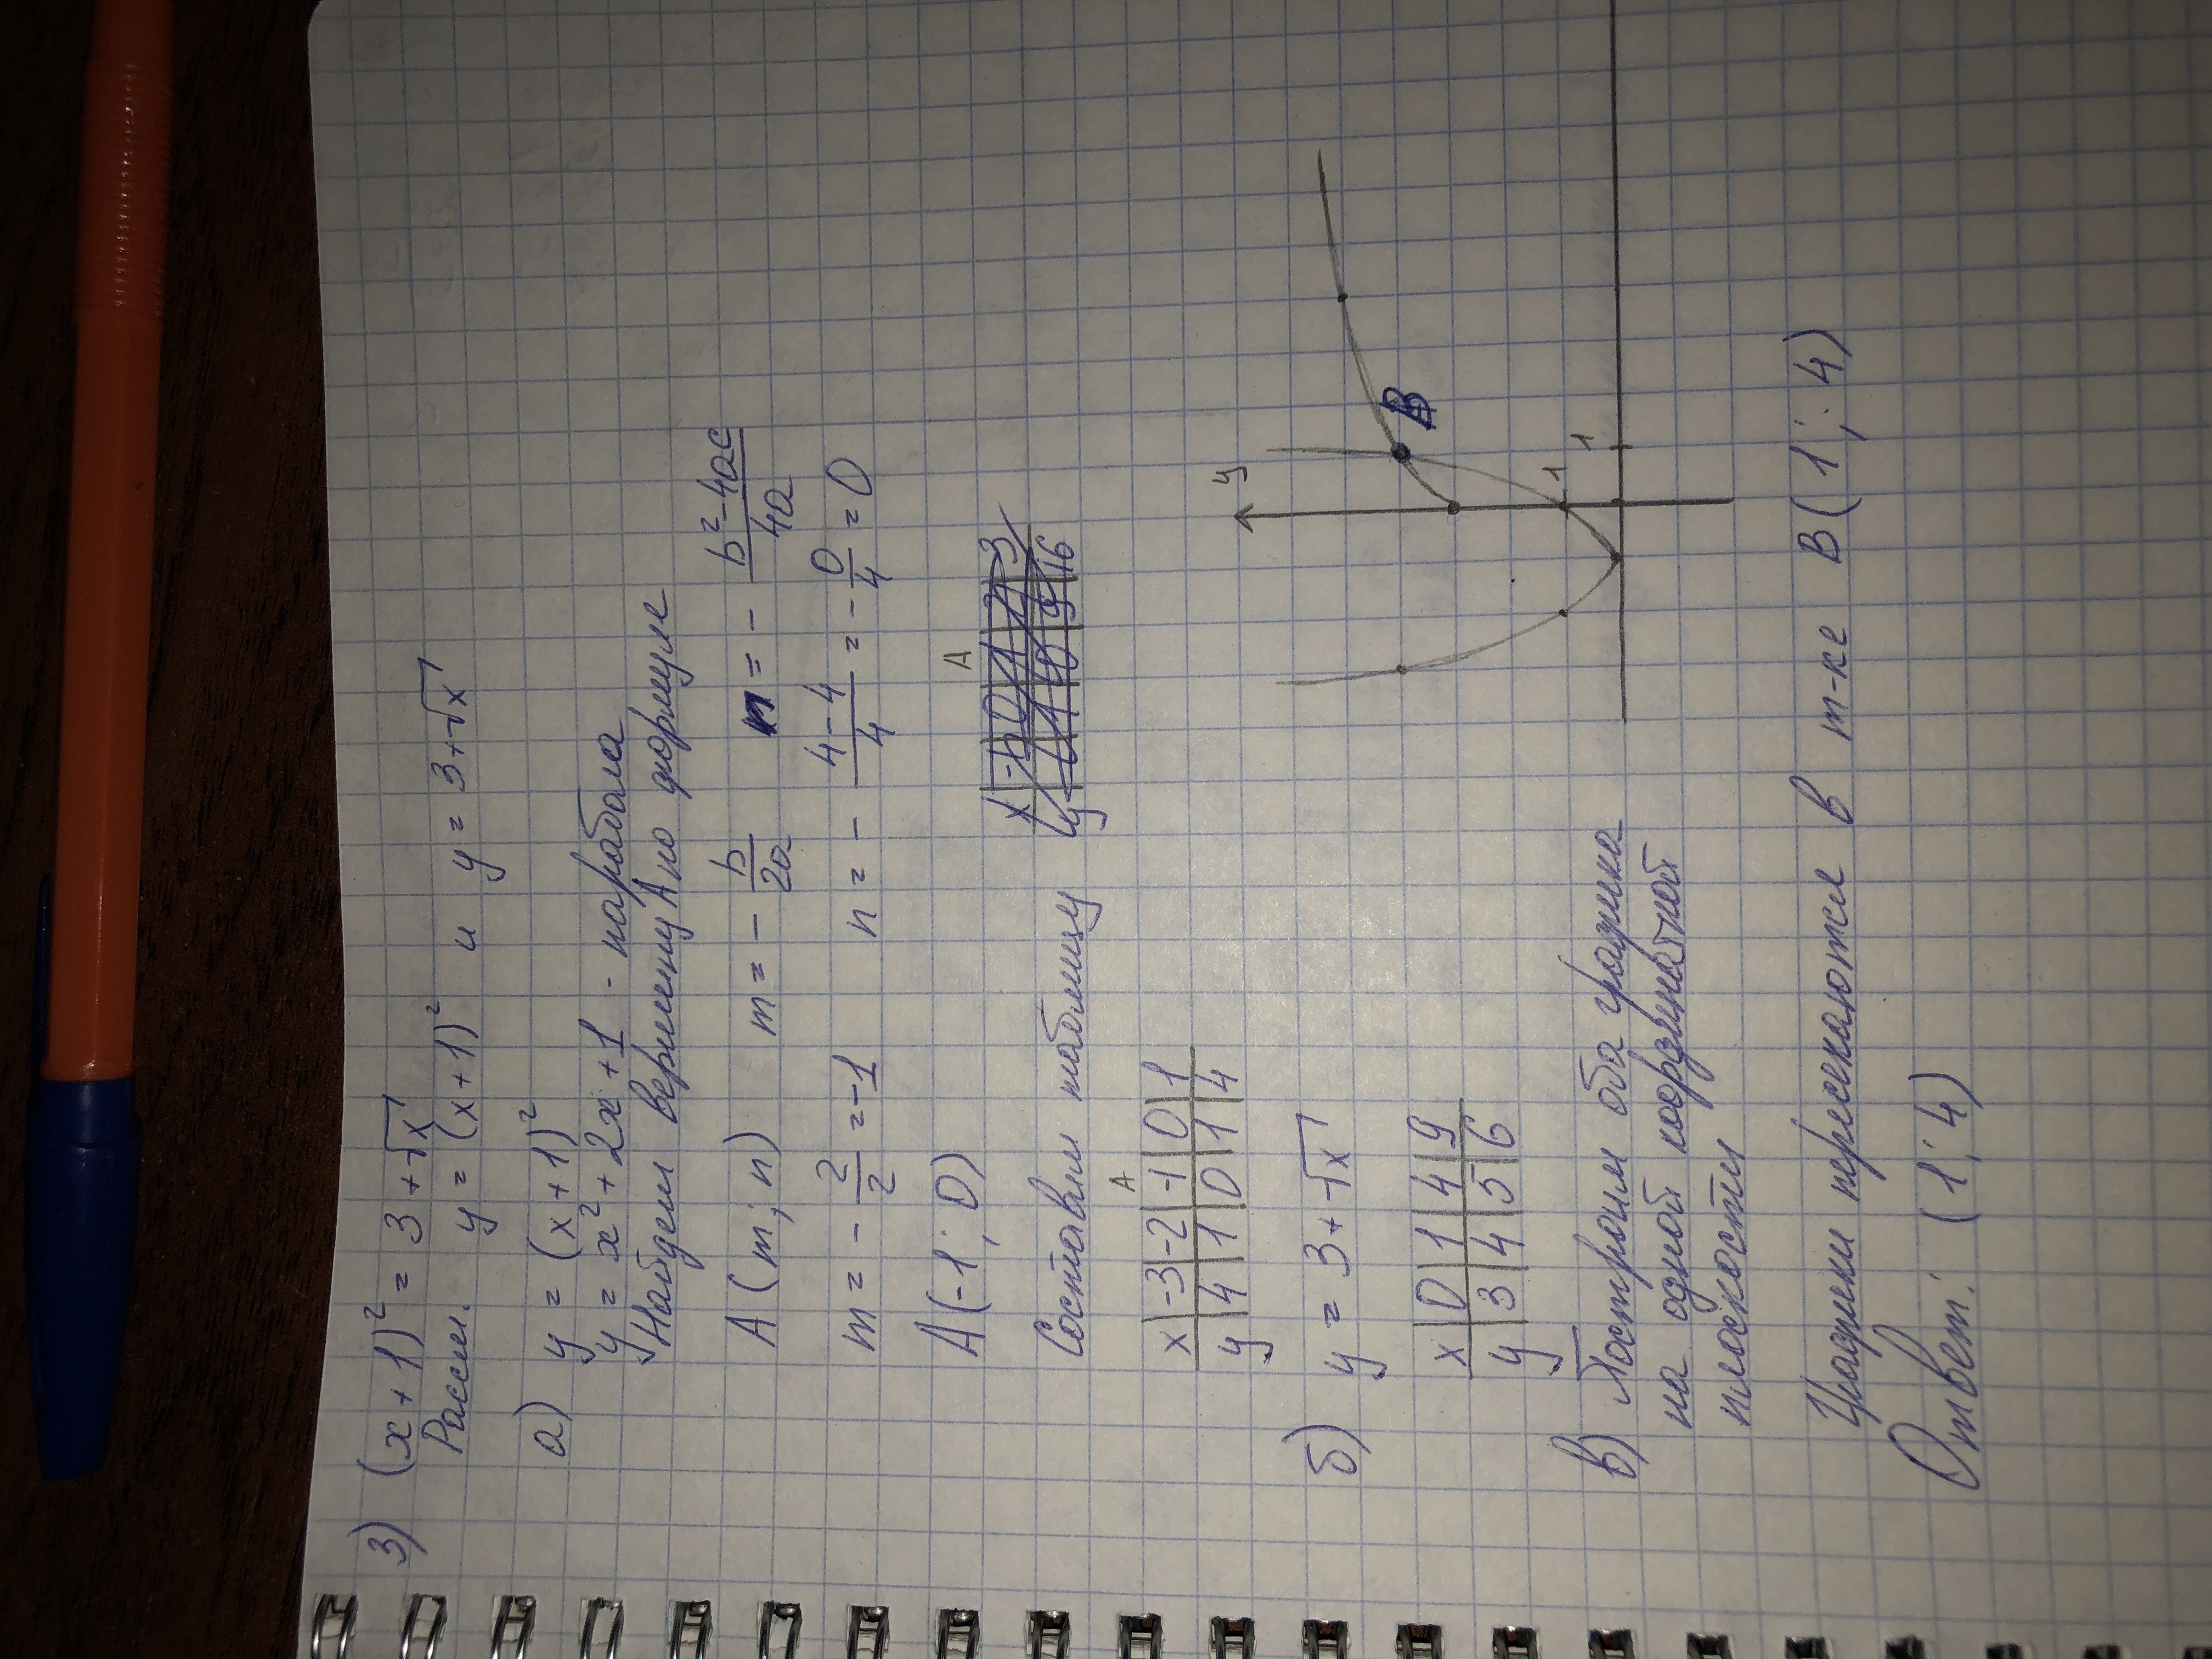 3) (x+1)² = 3+√x
Рассм. y = (x+1)² и y = 3+√x
а) y = (x+1)²
y = x²+2x+1 - парабола
Найдем вершину А по формуле
A(m; n) m = - b/2a n = - b²-4ac/4a
m = - 2/2 = -1 n = - 4-4/4 = - 0/4 = 0
A(-1; 0)
Составим таблицу
A
x -3 -2 -1 0 1
y 4 1 0 1 4
A
б) y = 3+√x
x 0 1 4 9
y 3 4 5 6
y
B
1
1
в) Построим оба графика
на одной координатной
плоскости
Графики пересекаются в т-ке B(1; 4)
Ответ: (1; 4)